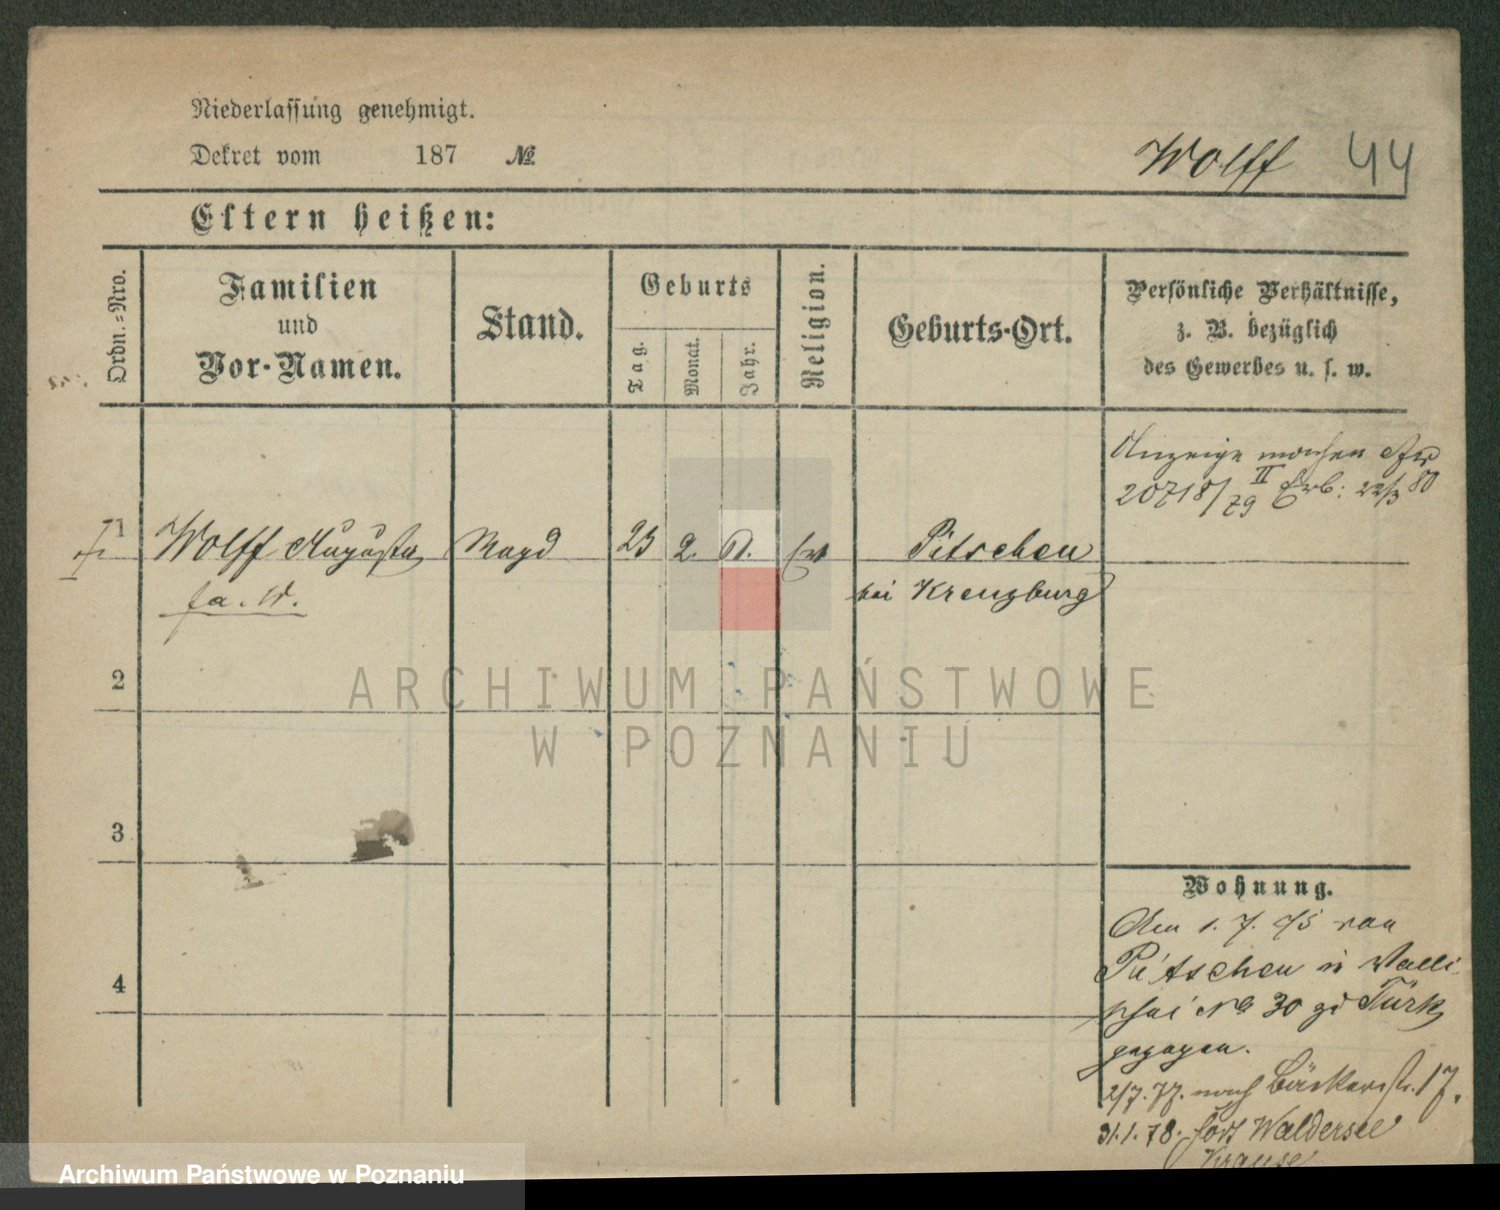 Niederlassung genehmigt.
Dekret vom 187 №
Wolff 44
Eltern heißen:
Ordn.-Nro.
Familien
und
Vor-Namen.
Stand.
Geburts
Tag.
Monat.
Jahr.
Religion.
Geburts-Ort.
Persönliche Verhältnisse,
z. B. bezüglich
des Gewerbes u. s. w.
Anzeige
20718/79 II 22/3 80
1 Wolff Auguste Magd 2. Pitschen
bei Kreuzburg
2
ARCHIWUM PAŃSTWOWE
W POZNANIU
3
4
Wohnung.
Am 1. 7. 75 von
Pitschen in Walli-
schei No 30 Türk
gezogen.
2/7. 77. nach Bäckerstr. 17.
31.1.78. Fort Waldersee
Krause
Archiwum Państwowe w Poznaniu